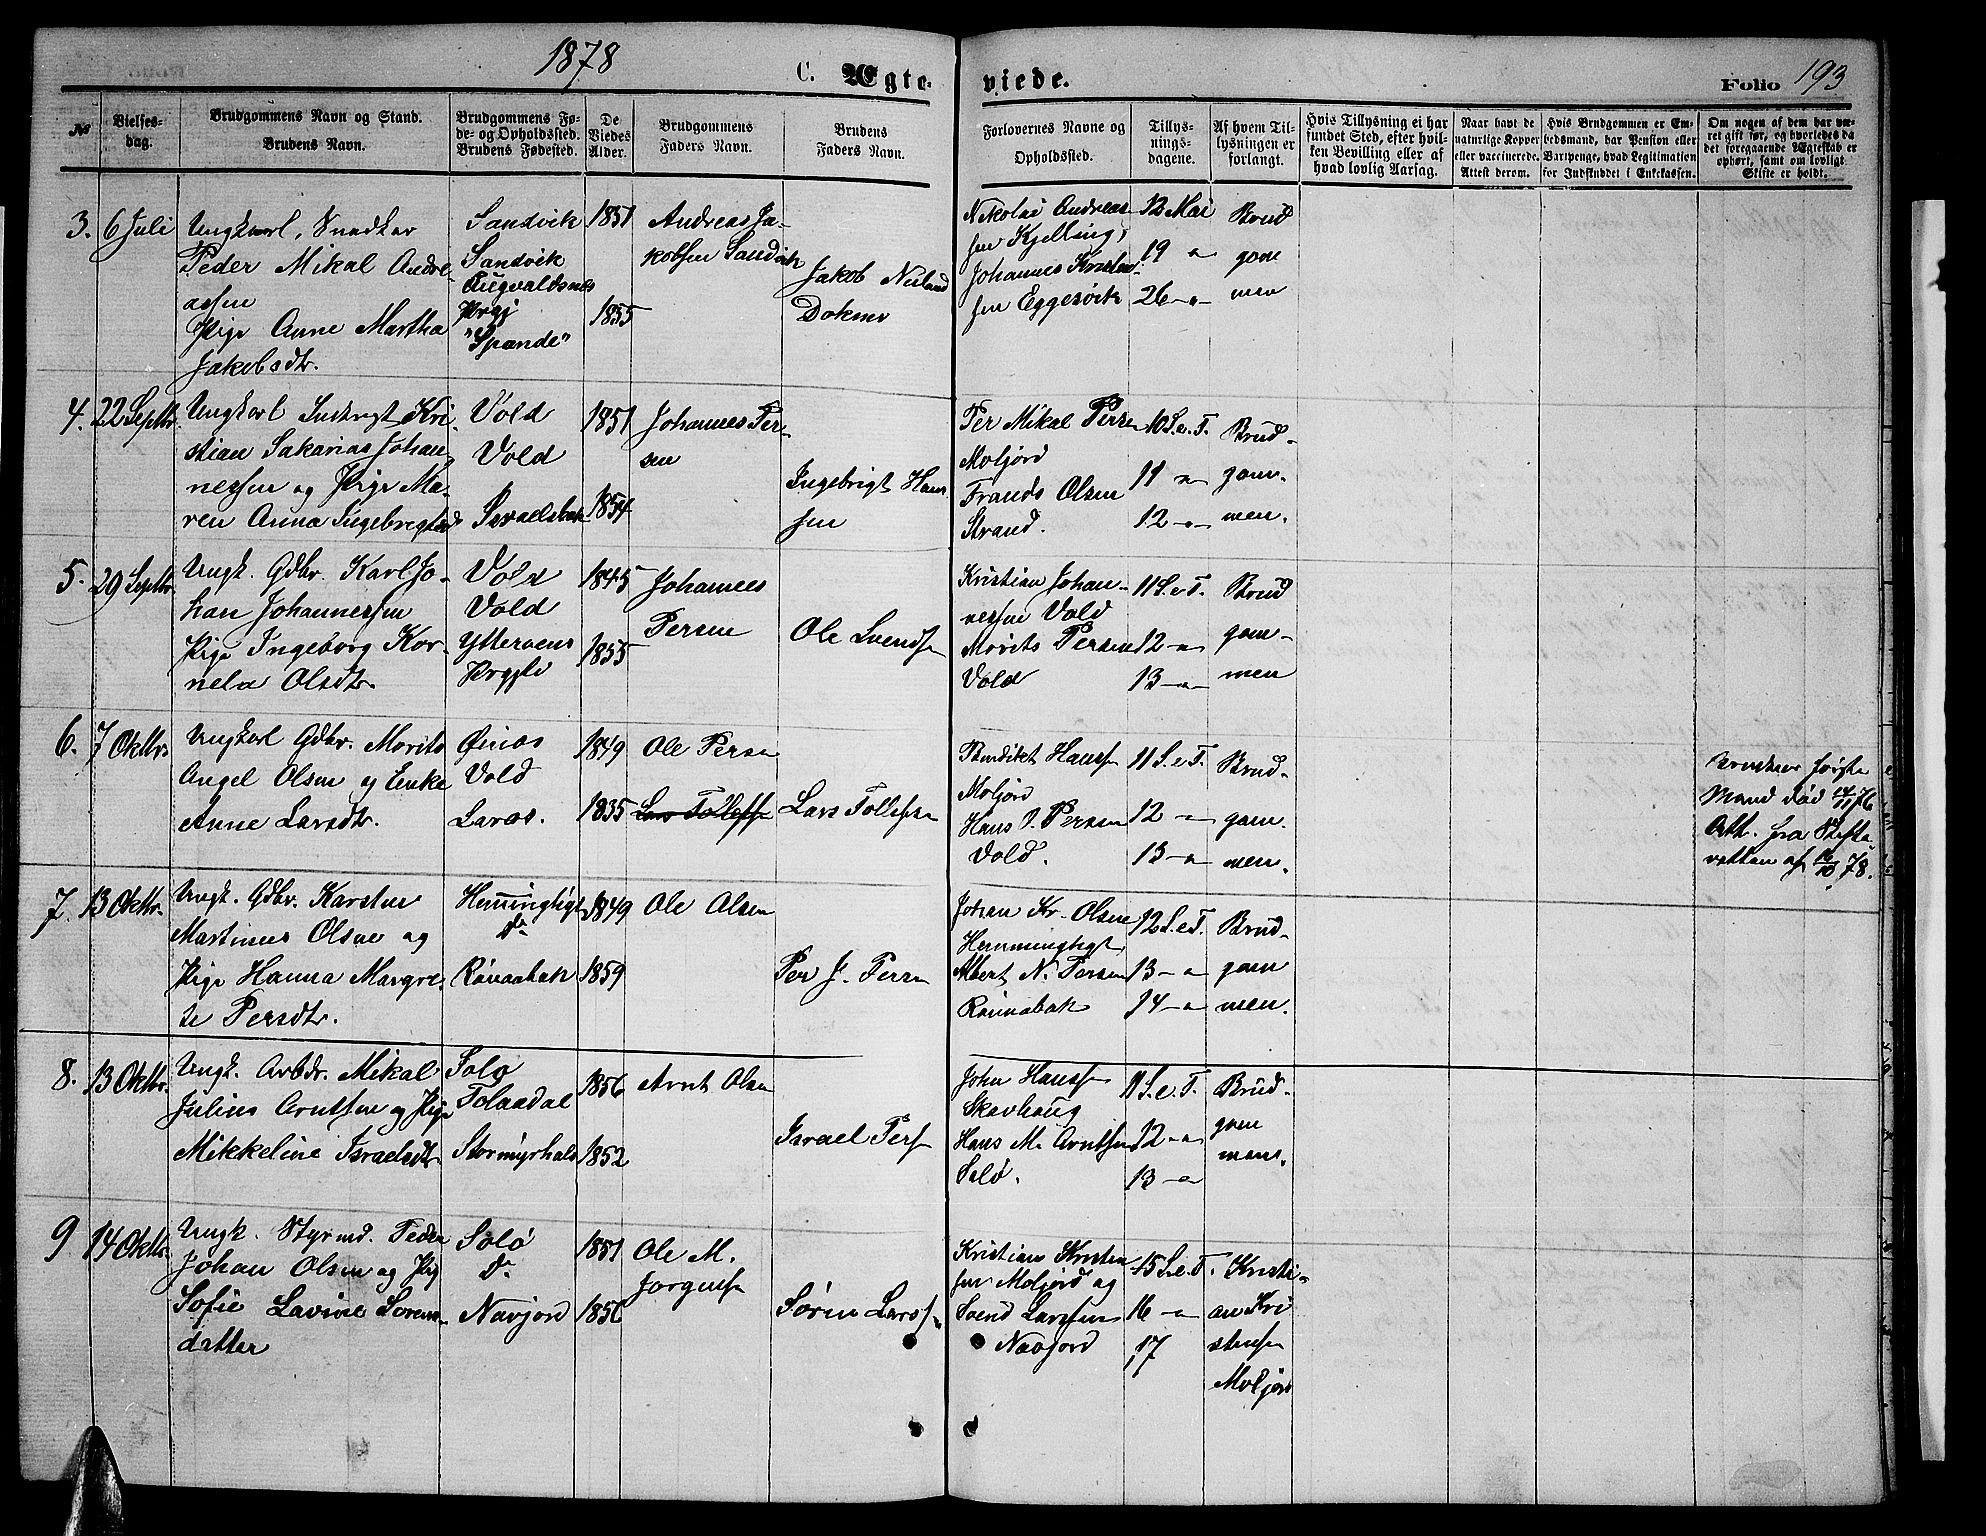 1878
C. Ægte-
viede.
Folio 193
No
Vielses-
dag.
Brudgommens Navn og Stand.
Brudens Navn.
Brudgommens Fø-
de- og Opholdssted.
Brudens Fødested.
De
Viedes
Alder.
Brudgommens
Faders Navn.
Brudens
Faders Navn.
Forlovernes Navne og
Opholdssted.
Tillys-
nings-
dagene.
Af hvem Til-
lysningen er
forlangt.
Hvis Tillysning ei har
fundet Sted, efter hvil-
ken Bevilling eller af
hvad lovlig Aarsag.
Naar havt de
naturlige Kopper
eller vaccinerede.
Attest derom.
Hvis Brudgommen er Em-
bedsmand, har Pension eller
Vartpenge, hvad Legitimation
for Indskuddet i Enkekassen.
Om nogen af dem har væ-
ret gift før, og hvorledes da
det foregaaende Ægteskab er
ophørt, samt om lovligt
Skifte er holdt.
3.
6 Juli
Ungkarl, Snedker
Peder Mikal Andre-
assen
Pige Anne Martha
Jakobsdtr.
Sandvik
Sandvik
Augvaldsnes
Prgj
"Spande"
1851
1855
Andreas Ja-
kobsen Sandvik
Jakob Neiland
Nikolai Andreas-
sen Kjelling,
Johannes Kristen-
sen Eggesvik
12 Mai
19 -"-
26 -"-
Brud
gom
men
4.
22 Septbr.
Ungkarl Kri-
stian Sakarias Johan
nessen og Pige Ma-
ren Anna Ingebrigtsd
Vold
Vold
Israelsbak
1851
1854
Johannes Per-
sen
Ingebrigt Han
sen
Per Mikal Persen
Moljord
Frands Olsen
Strand.
10 S. e. T.
11 -"-
12 -"-
Brud-
gom-
men.
5.
29 Septbr.
Ungk. Gdbr. Karl Jo-
han Johannessen
Pige Ingeborg Kor-
nela Olsdtr.
Vold
Vold
1845
1855
Johannes
Persen
Ole Svends
Kristian Johan-
nessen Vold
Morits Persen
Vold
11 S. e. T.
12 -"-
13 -"-
Brud
gom-
men
6.
7 Oktbr.
Ungkarl Gdbr. Morits
Angel Olsen og Enke
Anne Larsdtr.
Øines
Vold
Laros.
1849
1835
Ole Persen
Lars Tollefsen
Lars Tollefsen
Benedikt Hanss
Moljord
Hans P. Persen
Vold.
11 S. e. T.
12 -"-
13 -"-
Brud-
gom.
men.
Brudens første
Mand død 14/11 76
Att. fra Skifte
retten af 78.
7.
13 Oktbr.
Ungk. Gdbr. Karsten
Martinus Olsen og
Pige Hanna Margre-
te Persdtr.
Hemmingligt
do
Rønaabak
1849
1859
Ole Olsen
Per J. Persn
Johan Kr. Olsen
Hemmingligt
Albert N. Persen
Rønnabak
12 S. e. T.
13 -"-
14 -"-
Brud-
gom
men.
8.
13 Oktbr.
Ungk. Arbdr. Mikal
Julius Arntsen og Pige
Mikkeline Israelsdtr.
Solø
Tolaadal
Stormyrhals
1856
1852
Arnt Olsn
Israel Pers
John Hanss
Skavhaug
Hans M. Arntsen
Solø.
11 S. e. T.
12 -"-
13 -"-
Brud-
gom
men.
9
14 Oktbr.
Ungk. Styrmd. Peder
Johan Olsen og Pig
Sofie Lavine Sørens-
datter
Solø
do
Navjord
1851
1856
Ole M.
Jørgens
Søren Larss.
Kristian Kristen
sen Moljord og
Svend Larssen
Navjord
15 S. e. T.
16 -"-
17
Kristi-
an Kri
stensen
Moljord